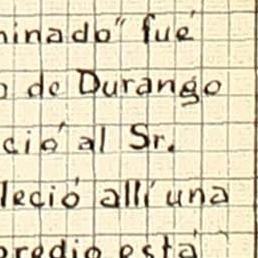 minado" fué
o de Durango
ció al Sr.
leció allí una
predio está